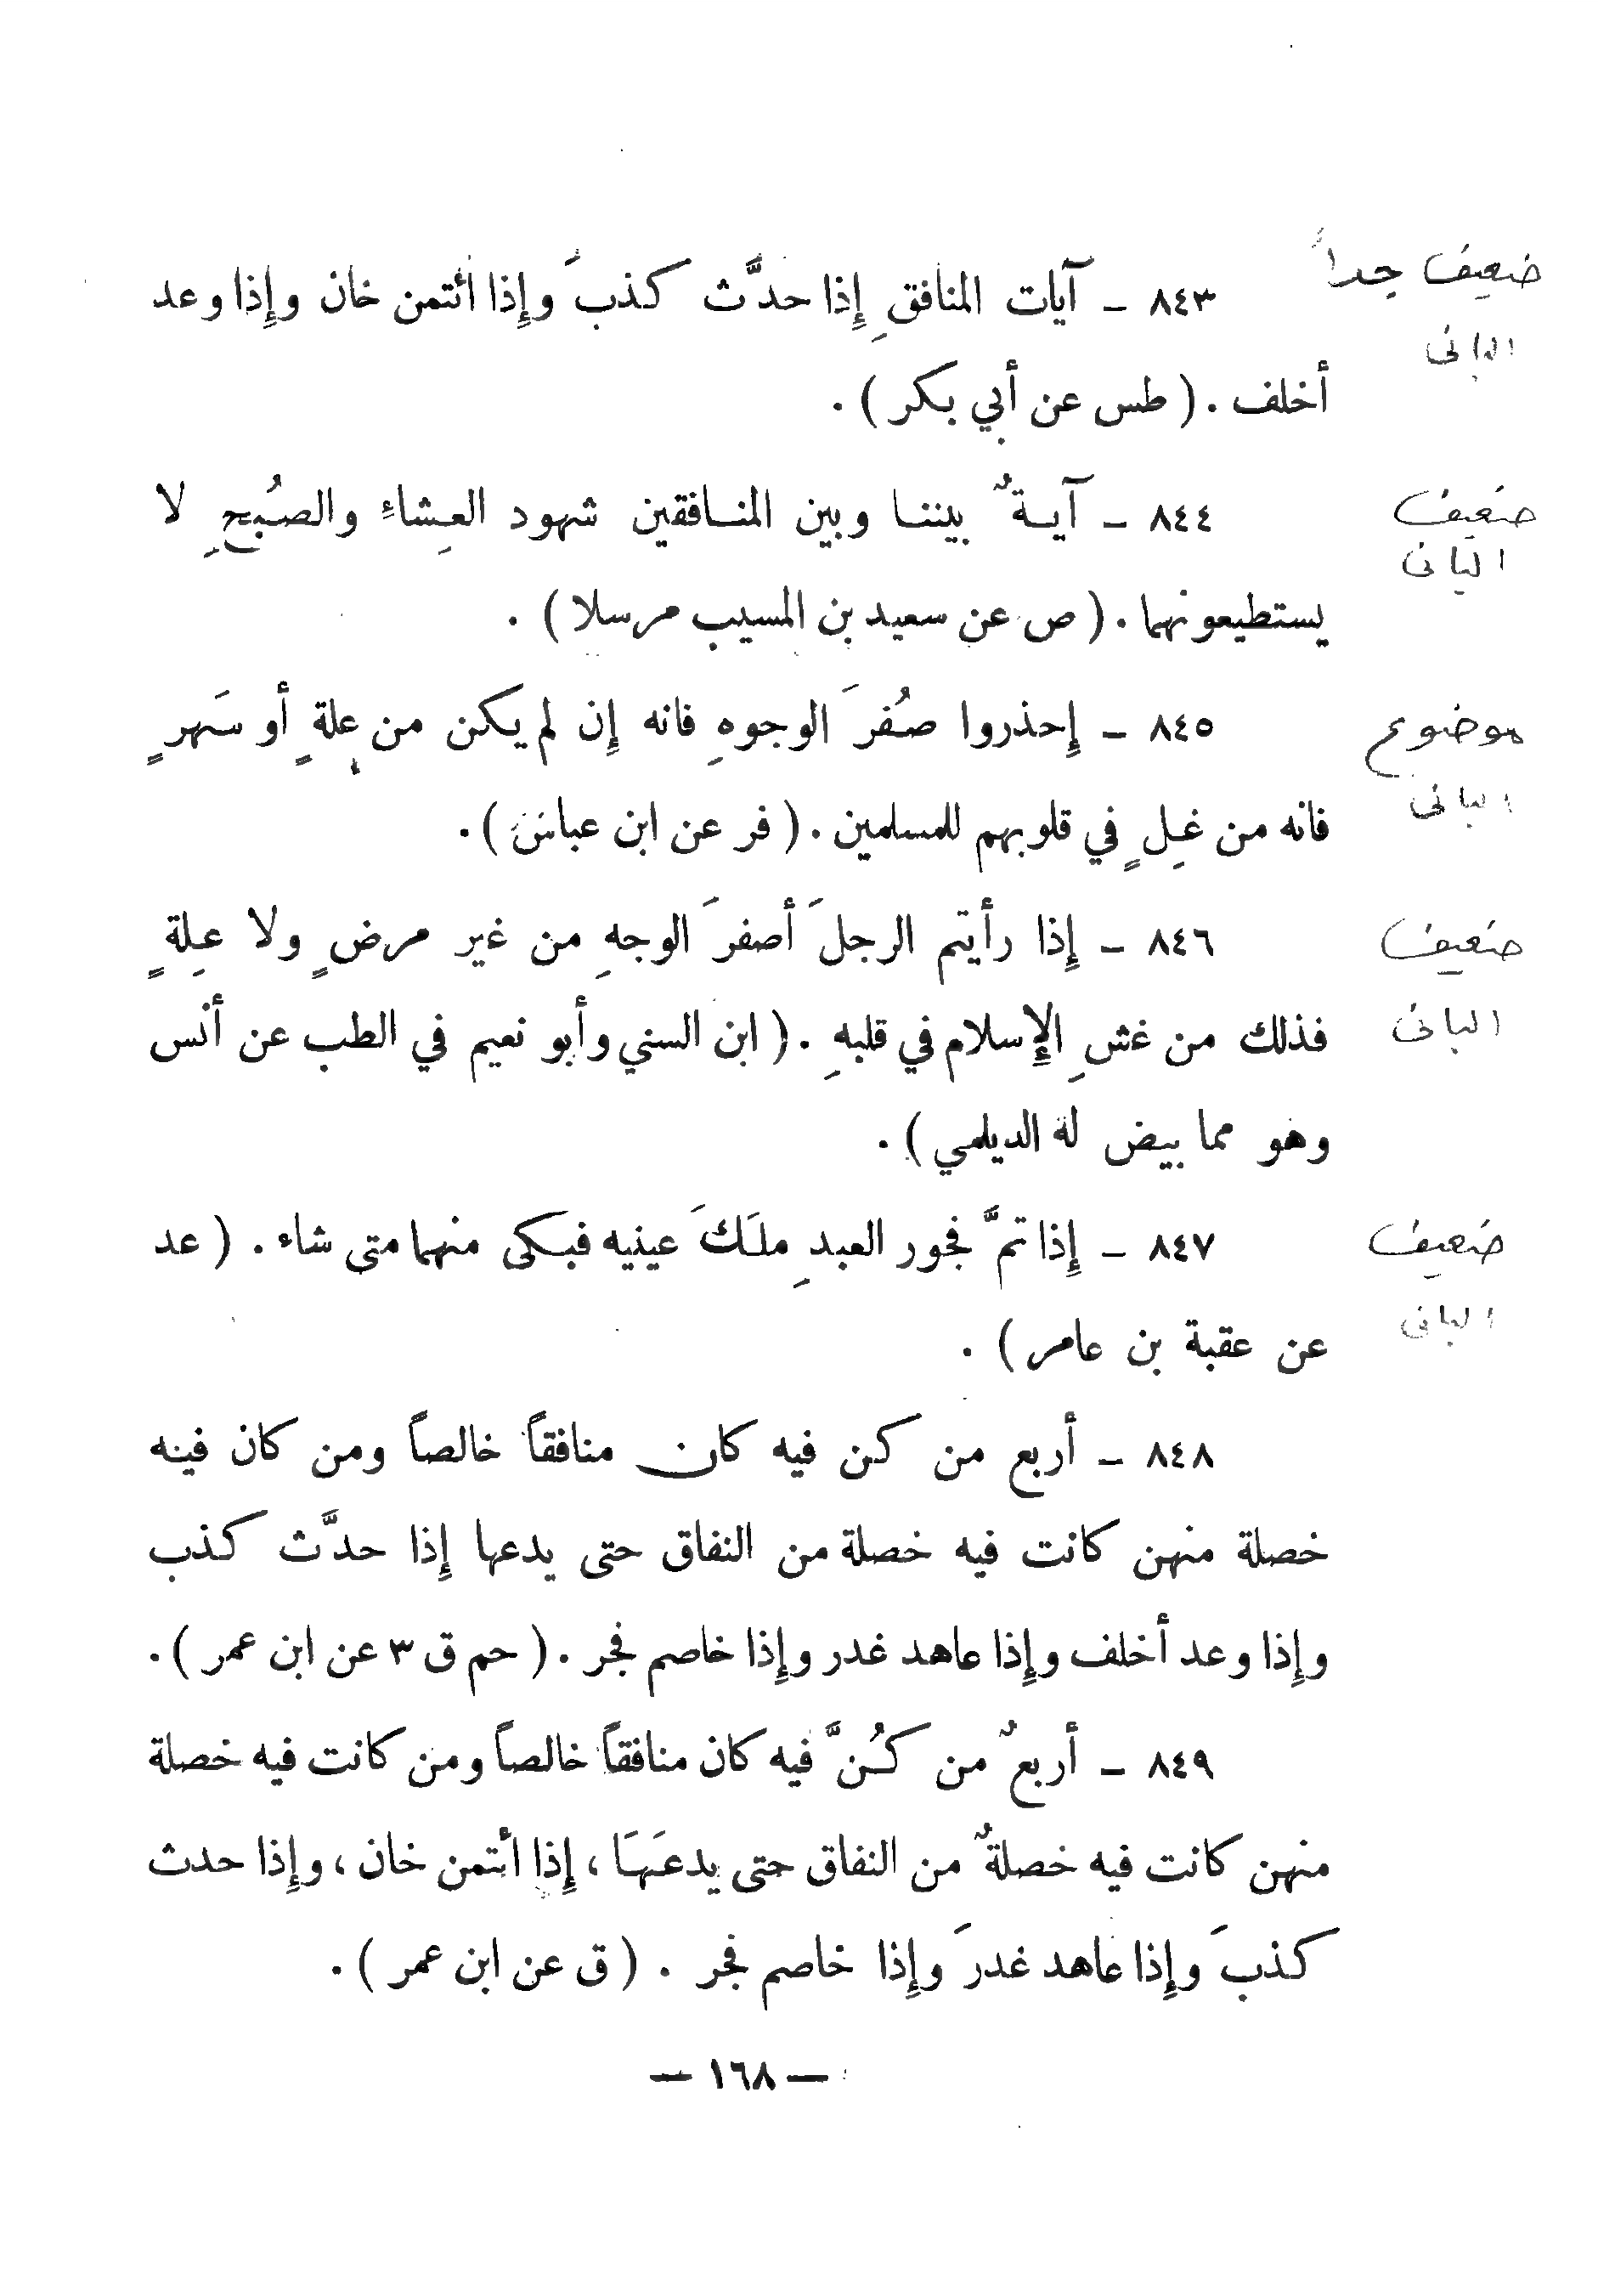 ضعيف جداً
البانى
٨٤٣ – آيات المنافقِ إِذا حدَّث كذبَ وإِذا ائتمن خان وإِذا وعد
أخلف . ( طس عن أبي بكر ) .
ضعيف
البانى
٨٤٤ – آيـةٌ بيننـا وبين المنـافقين شهود العِشاءِ والصُبحِ لا
يستطيعونهما . ( ص عن سعيد بن المسيب مرسلا ) .
موضوع
البانى
٨٤٥ – إِحذروا صُفرَ الوجوهِ فانه إِن لم يكن من عِلةٍ أو سَهرٍ
فانه من غِلٍ في قلوبهم للمسلمين . ( فر عن ابن عباس ) .
ضعيف
البانى
٨٤٦ – إِذا رأيتم الرجلَ أصفرَ الوجهِ من غير مرضٍ ولا عِلةٍ
فذلك من غشِ الإِسلام في قلبهِ . ( ابن السني وأبو نعيم في الطب عن أنس
وهو مما بيض له الديلمي ) .
ضعيف
البانى
٨٤٧ – إِذا تمَّ فجور العبدِ ملَكَ عينيه فبكى منهما متى شاء . ( عد
عن عقبة بن عامر ) .
٨٤٨ – أربع من كن فيه كان منافقاً خالصاً ومن كان فيه
خصلة منهن كانت فيه خصلة من النفاق حتى يدعها إِذا حدَّث كذب
وإِذا وعد أخلف وإِذا عاهد غدر وإِذا خاصم فجر . ( حم ق ٣ عن ابن عمر ) .
٨٤٩ – أربعٌ من كُنَّ فيه كان منافقاً خالصاً ومن كانت فيه خصلة
منهن كانت فيه خصلةٌ من النفاق حتى يدعَهَا ، إِذا أئتمن خان ، وإِذا حدث
كذبَ وإِذا عاهد غدرَ وإِذا خاصم فجر . ( ق عن ابن عمر ) .
— ١٦٨ —